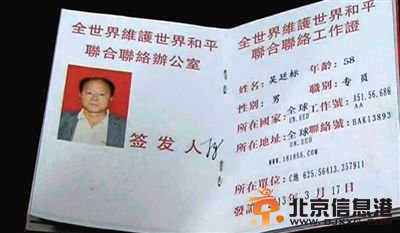 全世界維護世界和平
聯合聯絡辦公室
签发人
全世界維護世界和平
聯合聯絡工作證
姓名：吴廷标 年龄：58
性别：男 職别：专員
所在國家：全球工作號：A51.56.686
UN.UED AA
所在地址：全球聯絡號：BAK13893
UN.UED
www.181855.COM
所在單位：C地 625.56413.357911
發證 13年 3月 17日
北京信息港